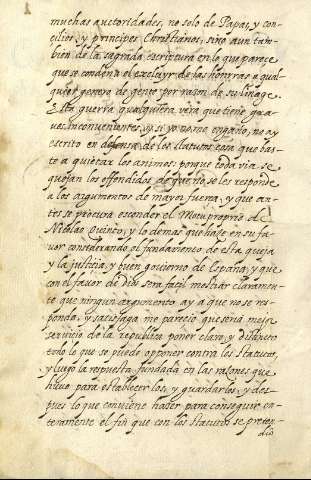 muchas auctoridades, no solo de Papas, y con-
cilios, y principes Christianos, sino aun tam-
bien de la sagrada escriptura en lo que parece
que se condena el excluyr de las honrras a qual-
quier genero de gente por razon de su linage.
Esta guerra qualquiera verà que tiene gra-
ves inconvenientes, y si yo no me engaño, no ay
escrito en defensa de los statutos cosa que bas-
te a quietar los animos: porque toda via se
quexan los offendidos de que no se les responde
a los argumentos de mayor fuerça, y que an-
tes se procura esconder el Motu proprio de
Nicolao Quinto, y lo demas que haze en su fa-
vor considerando el fundamento de esta quexa
y la justicia, y buen govierno de España, y que
con el favor de dios serà facil mostrar claramen-
te que ningun argumento ay a que no se res-
ponda, y satisfaga me pareciò que seria mejor
servicio de la republica poner claro, y distincto
todo lo que se puede opponer contra los statutos,
y luego la respuesta fundada en las razones que
huvo para establecerlos, y guardarlos, y des-
pues lo que conviene hazer para conseguir en-
teramente el fin que con los statutos se preten-
diò